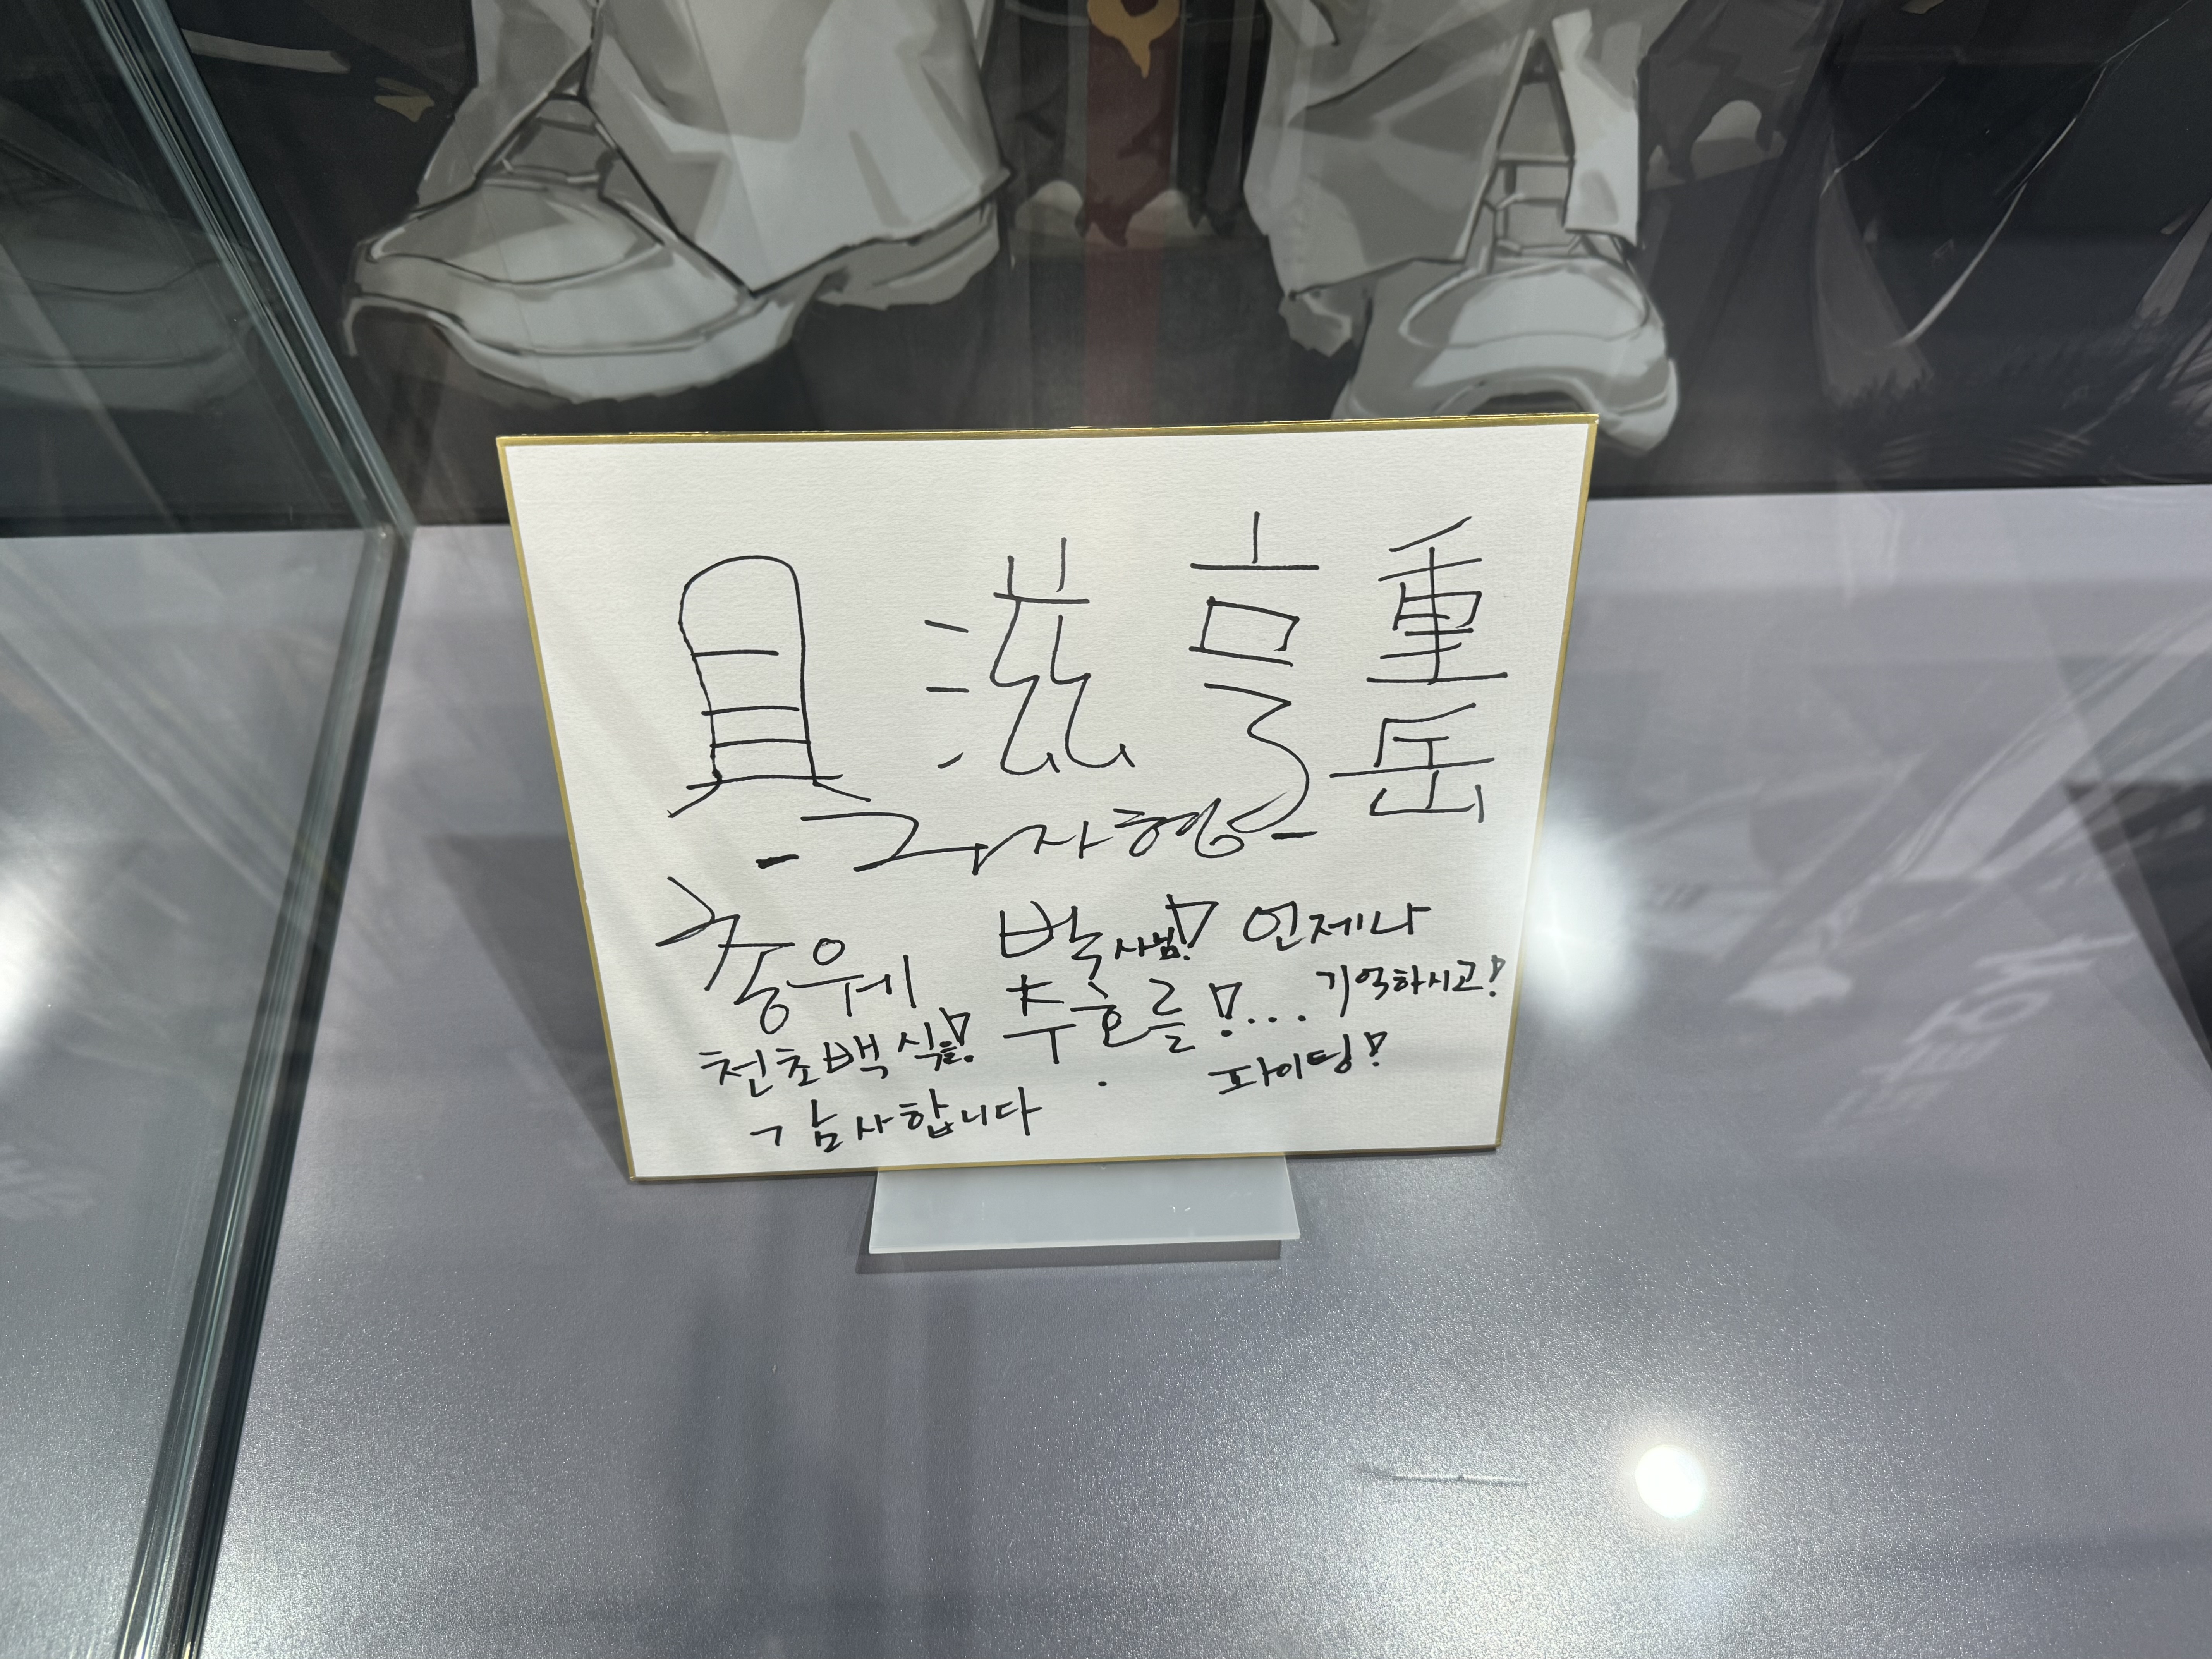 具滋亨 重岳
-구자형-
총웨 박사님! 언제나
천초백식을! 추호를!... 기억하시고!
감사합니다. 파이팅!